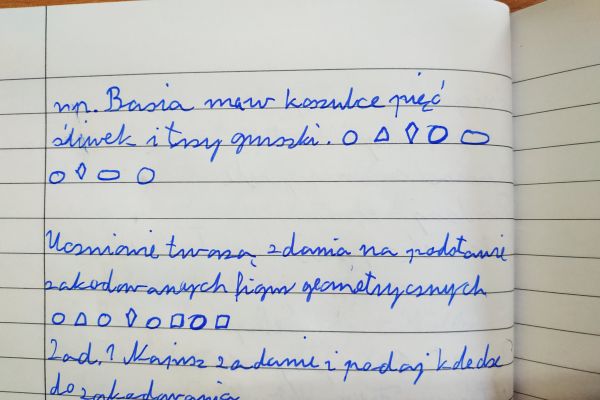 np. Basia ma w koszulce pięć
śliwek i trzy gruszki.
Uczniowie tworzą zdania na podstawie
zakodowanych figur geometrycznych
Zad. 1 Napisz zadanie i podaj koledze
do zakodowania